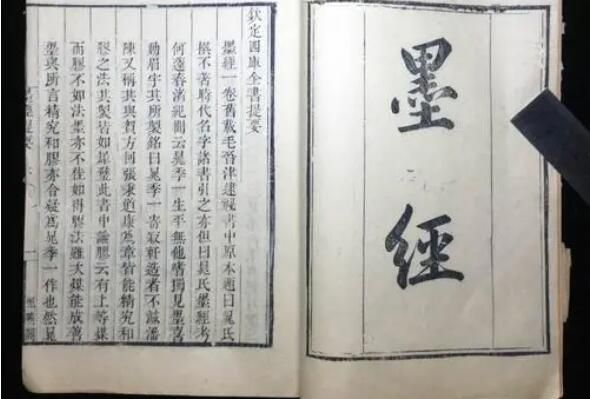 墨經
欽定四庫全書提要
墨經一卷舊載毛晉津逮祕書中原本題曰晁氏
撰不著時代名字諸書引之亦但曰晁氏墨經考
何薳春渚紀聞云晁季一生平無他嗜獨見墨喜
動眉宇其所製銘曰晁季一寄寂軒造者不減潘
陳又稱其與賀方回張秉道康爲章皆能精究和
膠之法其製皆如犀璧此書中論膠云有上等煤
而膠不如法墨亦不佳如得膠法雖次煤能成善
墨與所言精究和膠亦合疑爲晁季一作也然晁
墨經提要